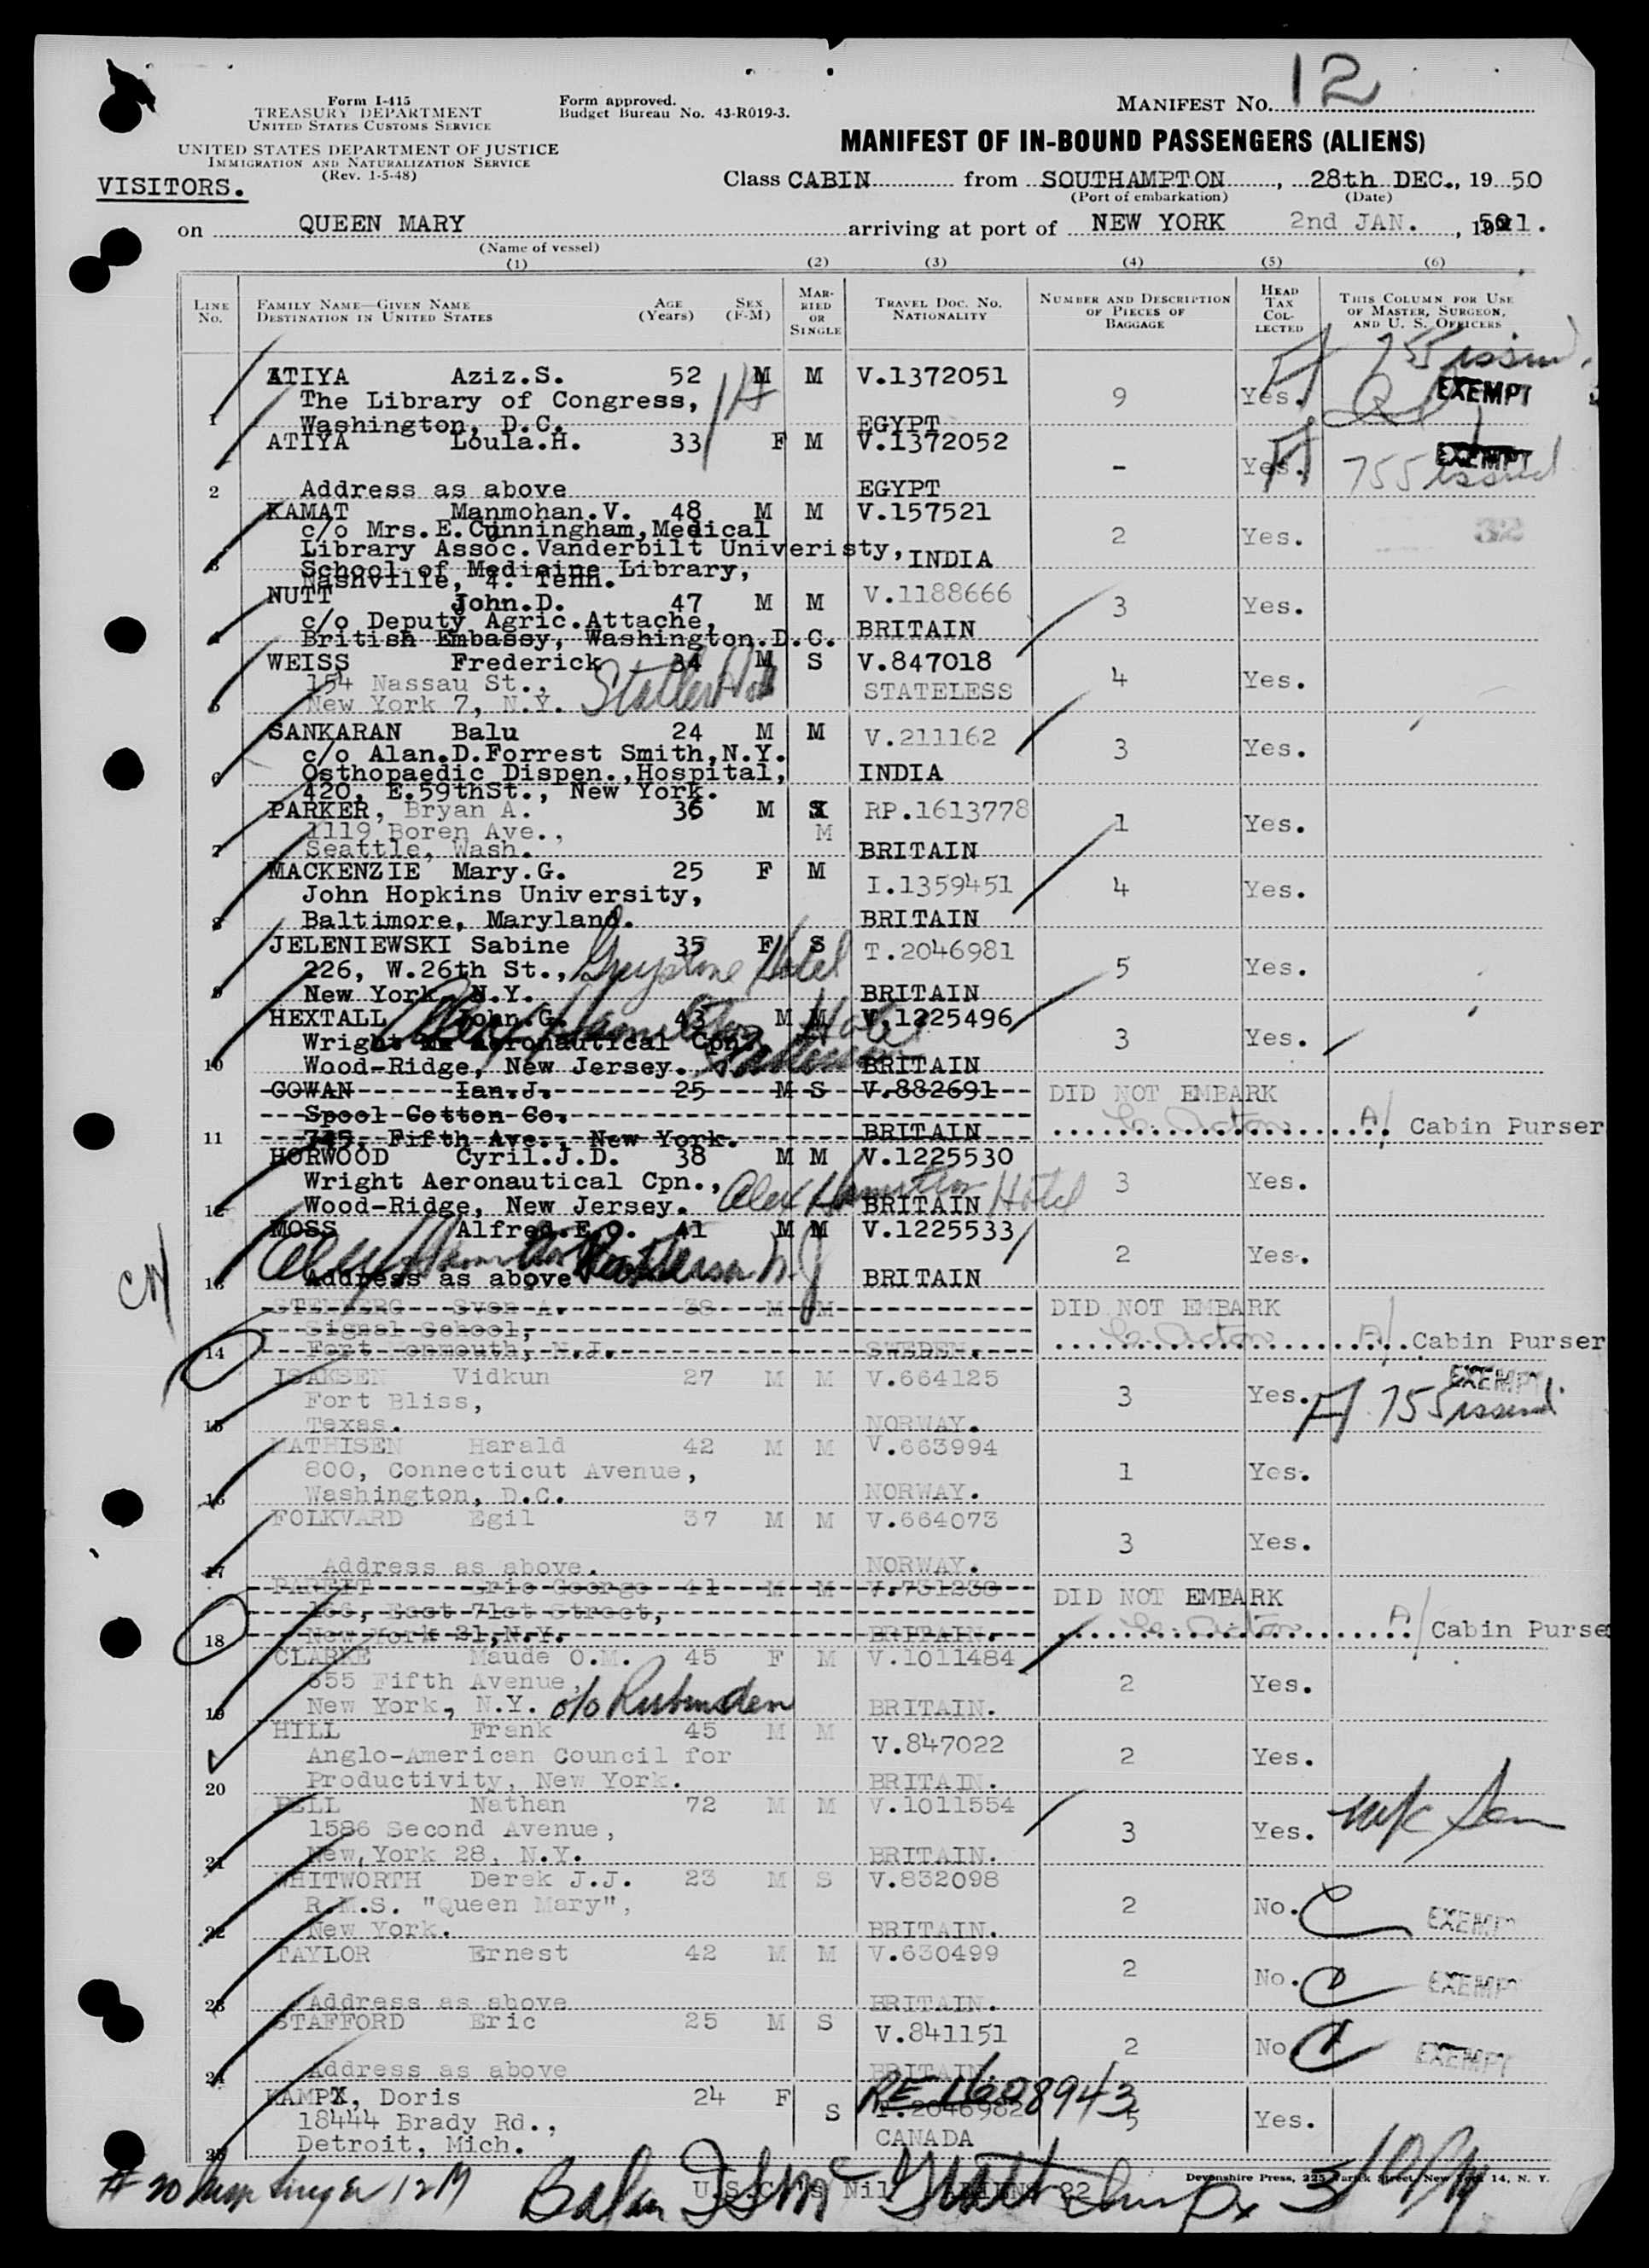 12
Form I-415
TREASURY DEPARTMENT
UNITED STATES CUSTOMS SERVICE
Form approved.
Budget Bureau No. 43-R019-3.
MANIFEST NO.
UNITED STATES DEPARTMENT OF JUSTICE
IMMIGRATION AND NATURALIZATION SERVICE
(Rev. 1-5-48)
MANIFEST OF IN-BOUND PASSENGERS (ALIENS)
VISITORS.
Class CABIN from SOUTHAMPTON, 28th DEC., 19 50
(Port of embarkation) (Date)
on QUEEN MARY arriving at port of NEW YORK 2nd JAN.
(Name of vessel)
(1) (2) (3) (4) (5) (6)
LINE No. FAMILY NAME—GIVEN NAME DESTINATION IN UNITED STATES AGE (Years) SEX (F-M) MARRIED OR SINGLE TRAVEL DOC. NO. NATIONALITY NUMBER AND DESCRIPTION OF PIECES OF BAGGAGE HEAD TAX COLLECTED THIS COLUMN FOR USE OF MASTER, SURGEON, AND U. S. OFFICERS
755 issued
ATIYA Aziz.S. 52 M M V.1372051
The Library of Congress, 9 Yes. EXEMPT
1 Washington, D.C. EGYPT
ATIYA Loula.H. 33 F M V.1372052
- Yes. EXEMPT
755 issued
2 Address as above EGYPT
KAMAT Manmohan.V. 48 M M V.157521
c/o Mrs.E.Cunningham,Medical 2 Yes. 32
Library Assoc.Vanderbilt Univeristy, INDIA
3 School of Medicine Library,
Nashville, 4. Tenn.
NUTT John.D. 47 M M V.1188666
3 Yes.
c/o Deputy Agric.Attache, BRITAIN
4 British Embassy, Washington.D.C.
WEISS Frederick 34 M S V.847018
154 Nassau St., Statler Hotel STATELESS 4 Yes.
5 New York 7, N.Y.
SANKARAN Balu 24 M M V.211162
c/o Alan.D.Forrest Smith,N.Y. 3 Yes.
6 Osthopaedic Dispen.,Hospital, INDIA
420, E.59thSt., New York.
PARKER, Bryan A. 36 M M RP.1613778
1119 Boren Ave., 1 Yes.
7 Seattle, Wash. BRITAIN
MACKENZIE Mary.G. 25 F M I.1359451
John Hopkins University, 4 Yes.
8 Baltimore, Maryland. BRITAIN
JELENIEWSKI Sabine 35 F S T.2046981
226, W.26th St., Greystone Hotel 5 Yes.
9 New York, N.Y. BRITAIN
HEXTALL John.G. 43 M M V.1225496
Alex Hamilton Hotel
Wright Aeronautical Cpn., 3 Yes.
10 Wood-Ridge, New Jersey. BRITAIN
GOWAN Ian.J. 25 M S V.882691 DID NOT EMBARK
Spool Cotton Co. Cabin Purser
11 745, Fifth Ave., New York. BRITAIN
HORWOOD Cyril.J.D. 38 M M V.1225530
Wright Aeronautical Cpn., 3 Yes.
12 Wood-Ridge, New Jersey. Alex Hamilton Hotel BRITAIN
MOSS Alfred.E.O. 41 M M V.1225533
Alex Hamilton Patterson N.J. 2 Yes.
13 Address as above BRITAIN
STENBERG Sven A. 38 M M DID NOT EMBARK
Signal School, Cabin Purser
14 Fort Monmouth, N.J. SWEDEN.
ISAKSEN Vidkun 27 M M V.664125 EXEMPT
Fort Bliss, 3 Yes. 755 issued
15 Texas. NORWAY.
MATHISEN Harald 42 M M V.663994
800, Connecticut Avenue, 1 Yes.
16 Washington, D.C. NORWAY.
FOLKVARD Egil 37 M M V.664073
3 Yes.
17 Address as above. NORWAY.
Eric George 41 M M V.731238 DID NOT EMBARK
166, East 71st Street, Cabin Purse
18 New York 21, N.Y. BRITAIN.
CLARKE Maude O.M. 45 F M V.1011484
655 Fifth Avenue, 2 Yes.
19 New York, N.Y. BRITAIN.
HILL Frank 45 M M V.847022
Anglo-American Council for 2 Yes.
20 Productivity, New York. BRITAIN.
BELL Nathan 72 M M V.1011554
1586 Second Avenue, 3 Yes.
21 New York 28, N.Y. BRITAIN.
WHITWORTH Derek J.J. 23 M S V.832098
R.M.S. "Queen Mary", 2 No. EXEMPT
22 New York. BRITAIN.
TAYLOR Ernest 42 M M V.630499
2 No. EXEMPT
23 Address as above BRITAIN.
STAFFORD Eric 25 M S V.841151
2 No. EXEMPT
24 Address as above BRITAIN.
RE 1608943
KAMPX, Doris 24 F S T.2046982 5 Yes.
18444 Brady Rd.,
25 Detroit, Mich. CANADA
Devonshire Press, 225 Varick Street, New York 14, N. Y.